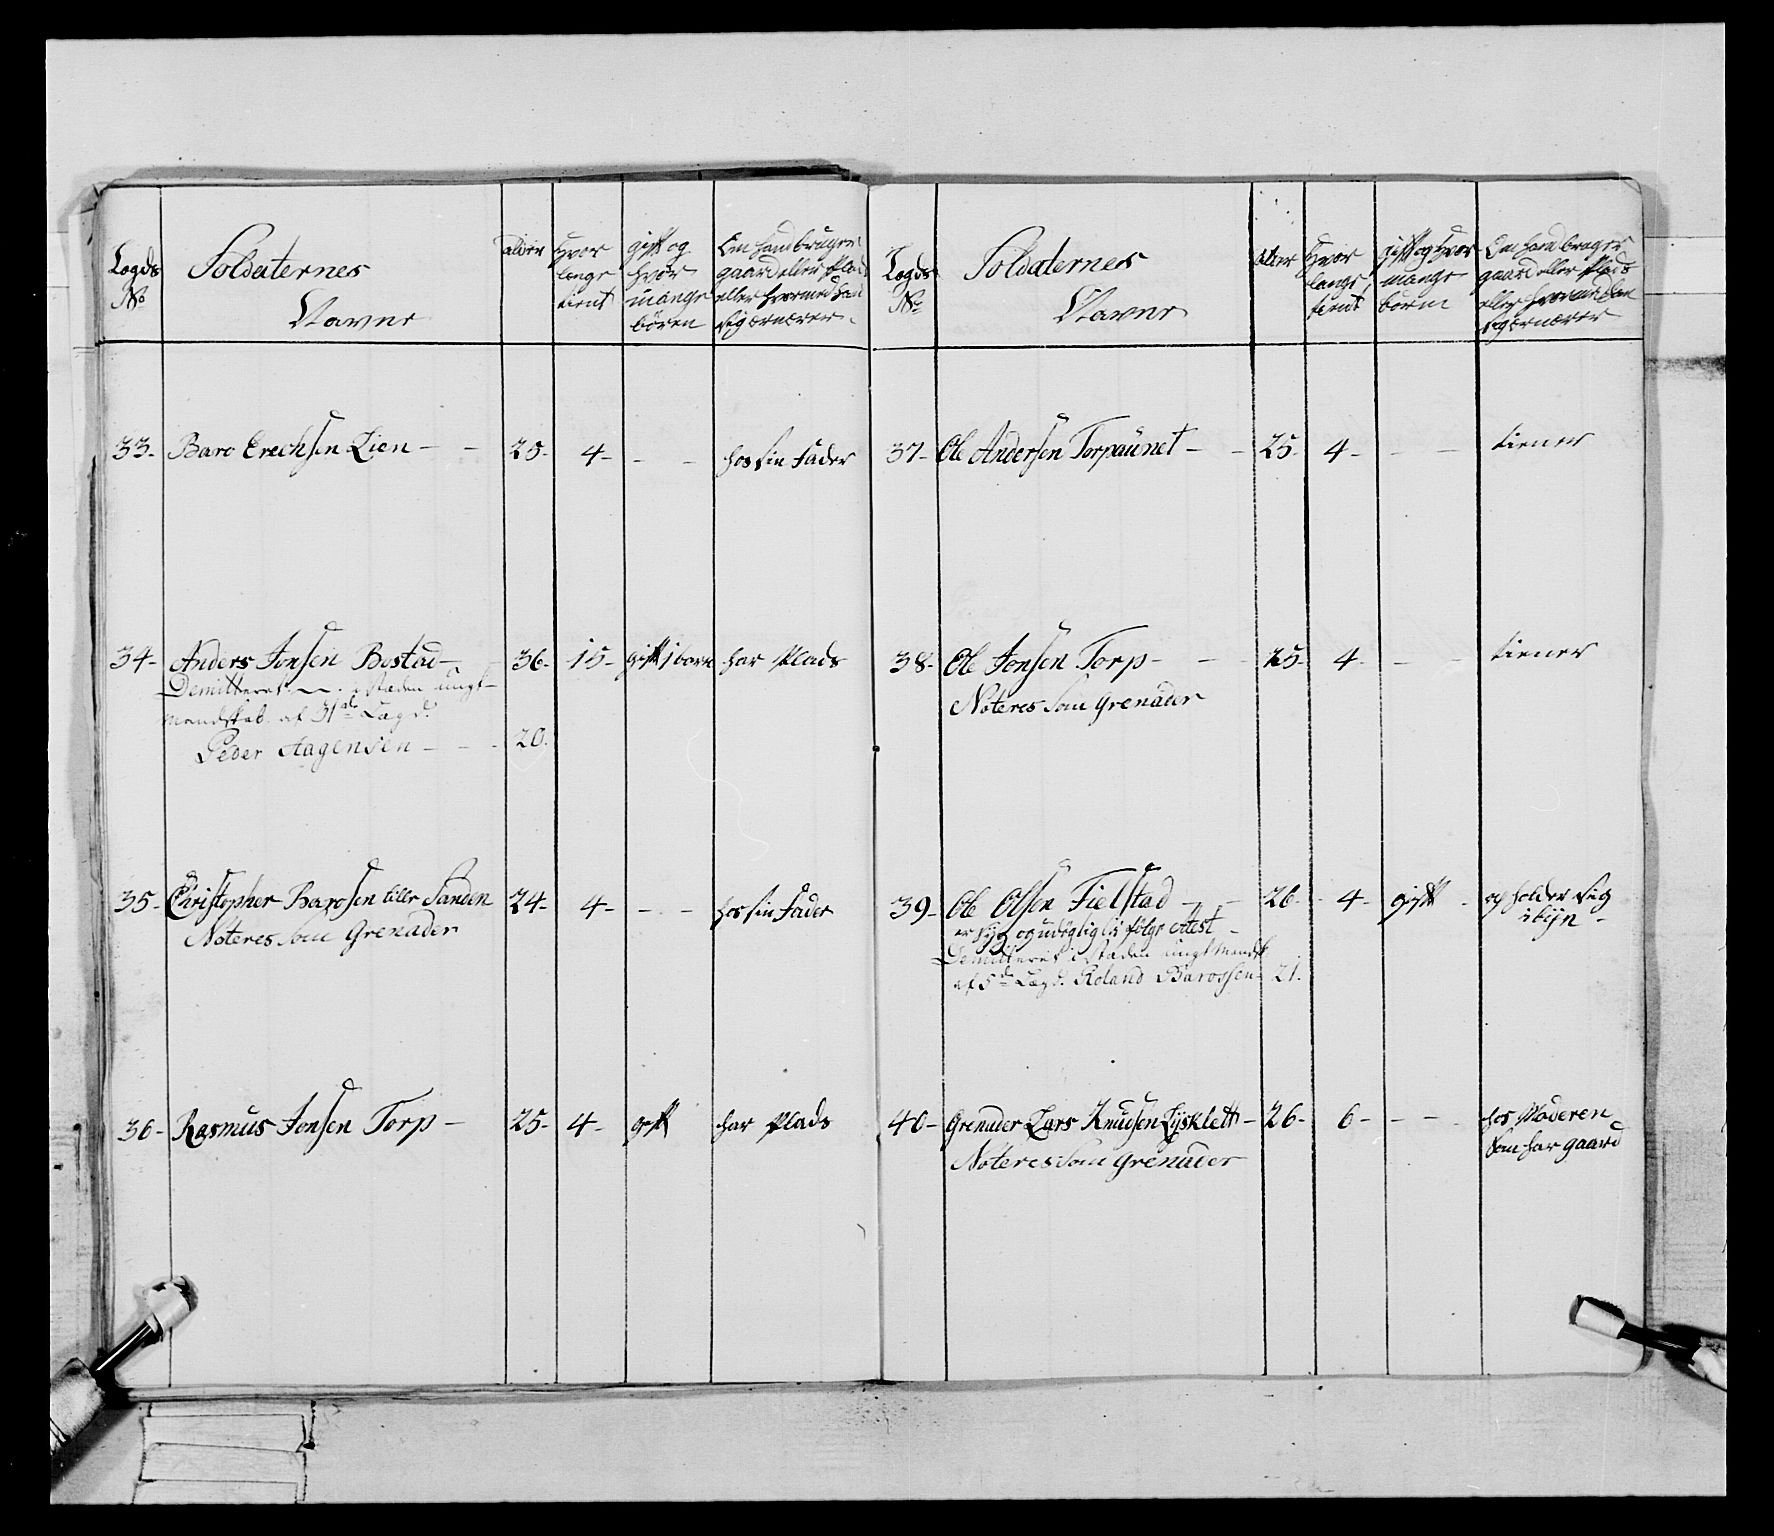 Legds No
Soldaternes Navne
alder
Hvor lenge tient
gift og hvor mange bören
Om hand bruger gaard eller Plads eller hvormed han sig ernærer
33- Baro Erechsen Lien - - 25- 4- - - hos sin Fader
34- Anders Jonsen Bostad- 36- 15- gift 1 barn har Plads
Demitteret i staden ungt
mandskab af 31te Lægd.
Peder Aagensen - - - 20.
35- Christopher Barosen eller Sanden 24- 4- - - hos sin Fader
Noteres som Grenader
36- Rasmus Jonsen Torp - 25- 4- gift har Plads
Legds No
Soldaternes Navne
alder
Hvor lange tient
gift og Hvor mange børn
Om hand bruger gaard eller Plads eller hvormed han sig ernærer
37- Ole Andersen Torpaunet - - 25- 4- - - tiener
38- Ole Jonsen Torp - - - 25- 4- - - tiener
Noteres som Grenader
39- Ole Olsen Fielstad - - 26- 4- gift - opholder sig
er syg og udygtig lif følge Attest - i byn -
Demitteret i staden ungt Mandsk
af 5te Lægd. Roland Barossen- 21.
40- Grenader Lars Knudsen Lysklett - 26- 6- - - hos Moderen
Noteres som Grenader som har gaard